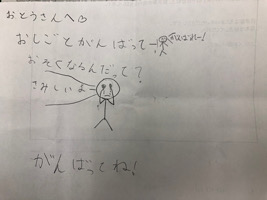 おとうさんへ♡
おしごとがんばってー！
がんばれー！
おそくならんだって？
さみしいよー
がんばってね！